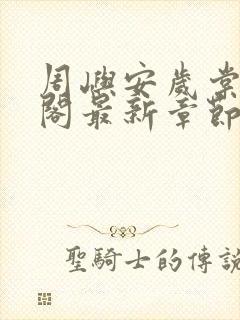 周嶼安歲棠
閣最新章節
聖騎士的傳說